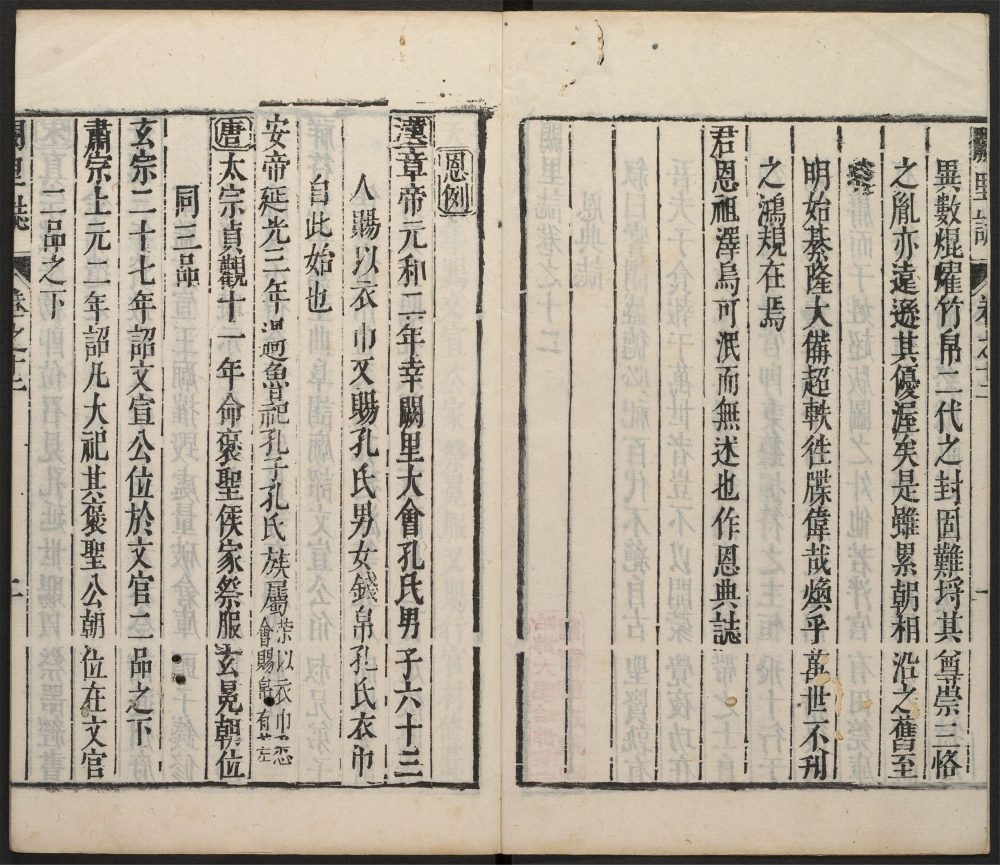 異數焜燿竹帛二代之封固難埒其尊崇三恪
之胤亦遠遜其優渥矣是雖累朝相沿之舊至
明始綦隆大備超軼徃牒偉哉煥乎萬世不刊
之鴻規在焉
君恩祖澤烏可泯而無述也作恩典誌
恩例
漢章帝元和二年幸闕里大會孔氏男子六十三
人賜以衣巾又賜孔氏男女錢帛孔氏衣巾
自此始也
安帝延光三年過魯祀孔子孔氏族屬
榮以衣巾悉
會賜帛有差
唐太宗貞觀十一年命褒聖侯家祭服玄冕朝位
同三品
玄宗二十七年詔文宣公位於文官二品之下
肅宗上元二年詔凡大祀其褒聖公朝位在文官
二品之下
闕里誌
卷之十二
二